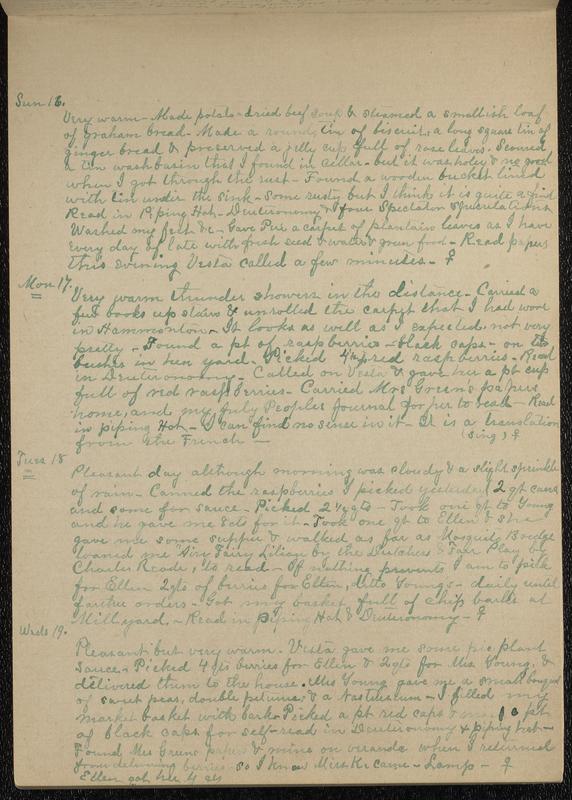 Sun 16.
Very warm - Made potato & dried beef soup & steamed a smallish loaf
of graham bread - Made a round tin of biscuits, a long square tin of
ginger bread & preserved a jelly cup full of rose leaves. Scoured
a tin wash basin that I found in cellar - but it was holey & no good
when I got through the rust - Found a wooden bucket lined
with tin under the sink - Some rusty but I think it is quite a find
Read in Piping Hot - Deuteronomy & four Spectator speculations
Washed my feet &c - Gave Pie a carpet of plantain leaves as I have
every day of late with fresh seed & water & green food - Read papers
this evening Vesta called a few minutes - ♀
Mon 17.
Very warm thunder showers in the distance - Carried a
few books up stairs & unrolled the carpet that I had wove
in Hammonton - It looks as well as I expected - not very
pretty - Found a pt of raspberries - black caps - on the
bushes in hen yard. Picked 4 qts red raspberries - Read
in Deuteronomy - Called on Vesta & gave her a pt cup
full of red raspberries - Carried Mrs Green's papers
home, and my July Peoples Journal for her to read - Read
in piping Hot - I can find no sense in it - It is a translation
from the French - (Sing) ♀
Tues 18
Pleasant day although morning was cloudy & a slight sprinkle
of rain - Canned the raspberries I picked yesterday 2 qt cans
and some for sauce - Picked 2 1/2 qts - Took one qt to Young
and he gave me 8 cts for it - Took one qt to Ellen & she
gave me some supper & walked as far as Mosquito Bridge
loaned me Airy Fairy Lilian by the Dutchess & Fair Play by
Charles Reade, to read - If nothing prevents I am to pick
for Ellen 2 qts of berries for Ellen, ditto Youngs - daily until
farther orders - Got my basket full of chip barks at
Mill yard, - Read in Piping Hot & Deuteronomy - ♀
Weds 19.
Pleasant but very warm. Vesta gave me some pie plant
sauce - Picked 4 qts berries for Ellen & 2 qts for Mrs Young, &
delivered them to the house. Mrs Young gave me a small bouquet
of sweet peas, double petunia, & a Nasturtium - I filled my
market basket with bark - Picked a pt red caps & pt
of black caps for self - read in Deuteronomy & piping hot -
Found Mrs Greens papers & mine on veranda when I returned
from delivering berries - so I know Miss came - Lamp - ♀
Ellen got her 4 qts